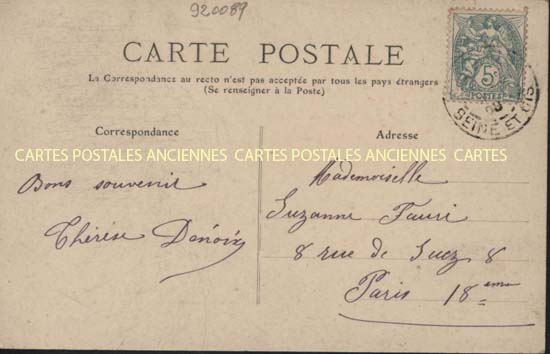 920089
CARTE POSTALE
La Correspondance au recto n'est pas acceptée par tous les pays étrangers
(Se renseigner à la Poste)
Correspondance
Adresse
CARTES POSTALES ANCIENNES CARTES POSTALES ANCIENNES CARTES
Bons souvenir
Thérèse
Mademoiselle
Suzanne Fauri
8 rue de Suez 8
Paris 18ème
5c
POSTES
SEINE ET OISE